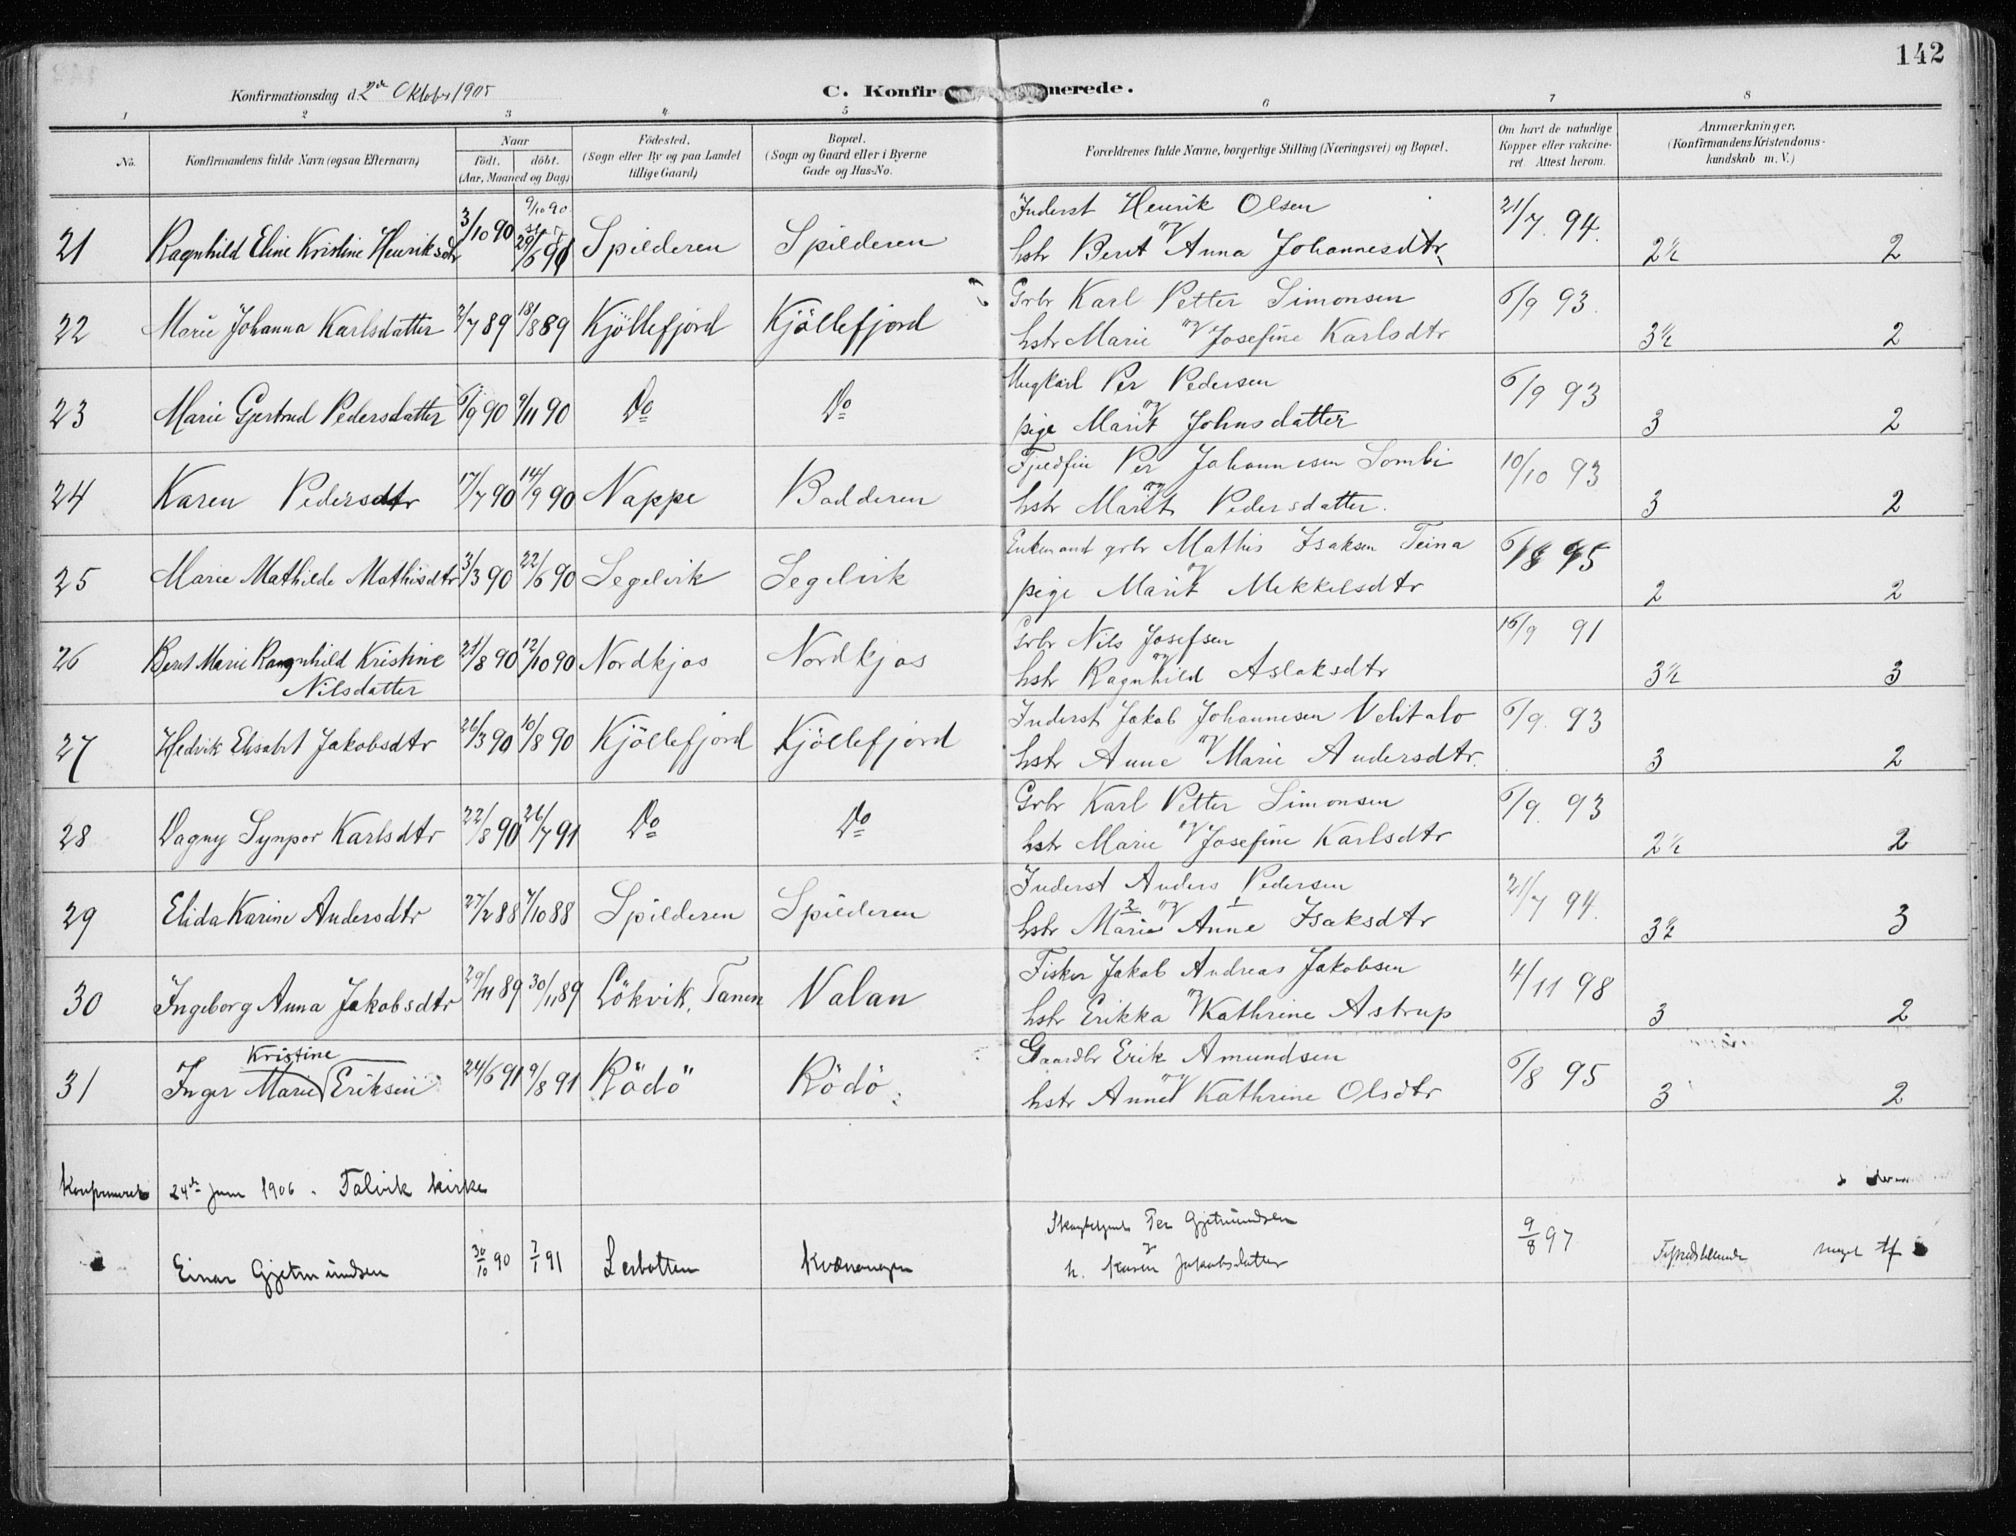 142
Konfirmationsdag d. 2de Oktober 1905 C. Konfir merede.
1 2 3 4 5 6 7 8
No. Konfirmandens fulde Navn (ogsaa Efternavn) Naar födt. döbt. (Aar, Maaned og Dag) Födested. (Sogn eller By og paa Landet tillige Gaard) Bopæl. (Sogn og Gaard eller i Byerne Gade og Hus-No. Forældrenes fulde Navne, borgerlige Stilling (Næringsvei) og Bopæl. Om havt de naturlige Kopper eller vakcineret. Attest herom. Anmærkninger. (Konfirmandens Kristendomskundskab m. V.)
9/10 90 Inderst Henrik Olsen
21 Ragnhild Eline Kristine Henriksdtr 3/10 90 29/6 91 Spilderen Spilderen hstr Berit Anna Johannesdtr 21/7 94. 2½ 2
Grbr Karl Petter Simonsen
22 Marie Johanna Karlsdatter 2/7 89 18/8 89 Kjöllefjord Kjöllefjord hstr Marie Josefine Karlsdtr 6/9 93. 3½ 2
Ungkarl Per Pedersen
23 Marie Gjertrud Pedersdatter 6/9 90 9/11 90 Do Do pige Marit Johnsdatter 6/9 93 3 2
Fjeldfin Per Johannesen Sombi
24 Karen Pedersdtr 17/7 90 14/9 90 Nappe Badderen hstr Marit Pedersdatter. 10/10 93 3 2
Enkemand grbr Mathis Isaksen Teina
25 Marie Mathilde Mathisdtr 3/3 90 22/6 90 Segelvik Segelvik pige Marit Mekkelsdtr 6/8 95 2 2
Grbr Nils Josefsen
26 Berit Marie Ragnhild Kristine Nilsdatter 21/8 90 12/10 90 Nordkjos Nordkjos hstr Ragnhild Aslaksdtr 16/9 91 3½ 3
Inderst Jakob Johannesen Velitalo
27 Hedvik Elisabet Jakobsdtr 26/3 90 10/8 90 Kjöllefjord Kjöllefjord hstr Anne Marie Andersdtr. 6/9. 93 3 2
Grbr Karl Petter Simonsen
28 Dagny Synnor Karlsdtr 22/8 90 26/7 91 Do Do hstr Marie Josefine Karlsdtr 6/9. 93 2½ 2
Inderst Anders Pedersen
29 Elida Karine Andersdtr 27/2 88 7/10 88 Spilderen Spilderen hstr Marie Anne Isaksdtr 21/7 94. 3½ 3
Fisker Jakob Andreas Jakobsen
30 Ingeborg Anna Jakobsdtr 29/11 89 30/11 89 Lökvik, Tanen Valan hstr Erikka Kathrine Astrup 4/11 98 3 2
Kristine Gaardbr Erik Amundsen
31 Inger Marie Eriksen 24/6 91 9/8 91 Rödö Rödö hstr Anne Kathrine Olsdtr 6/8 95 3 2
Konfirmeret 24de Juni 1906. Talvik kirke
Per Gjetmundsen
Einar Gjetmundsen 30/10 90 7/1 91 Lerbotten Kvænangen h. Karen Jakobsdatter 9/8 97 Tilfredsstillende meget tf